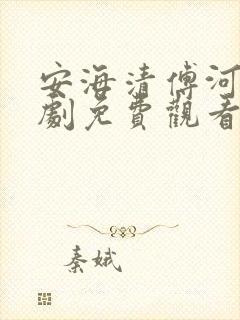 安海清傅河
劇免費觀看
秦娥